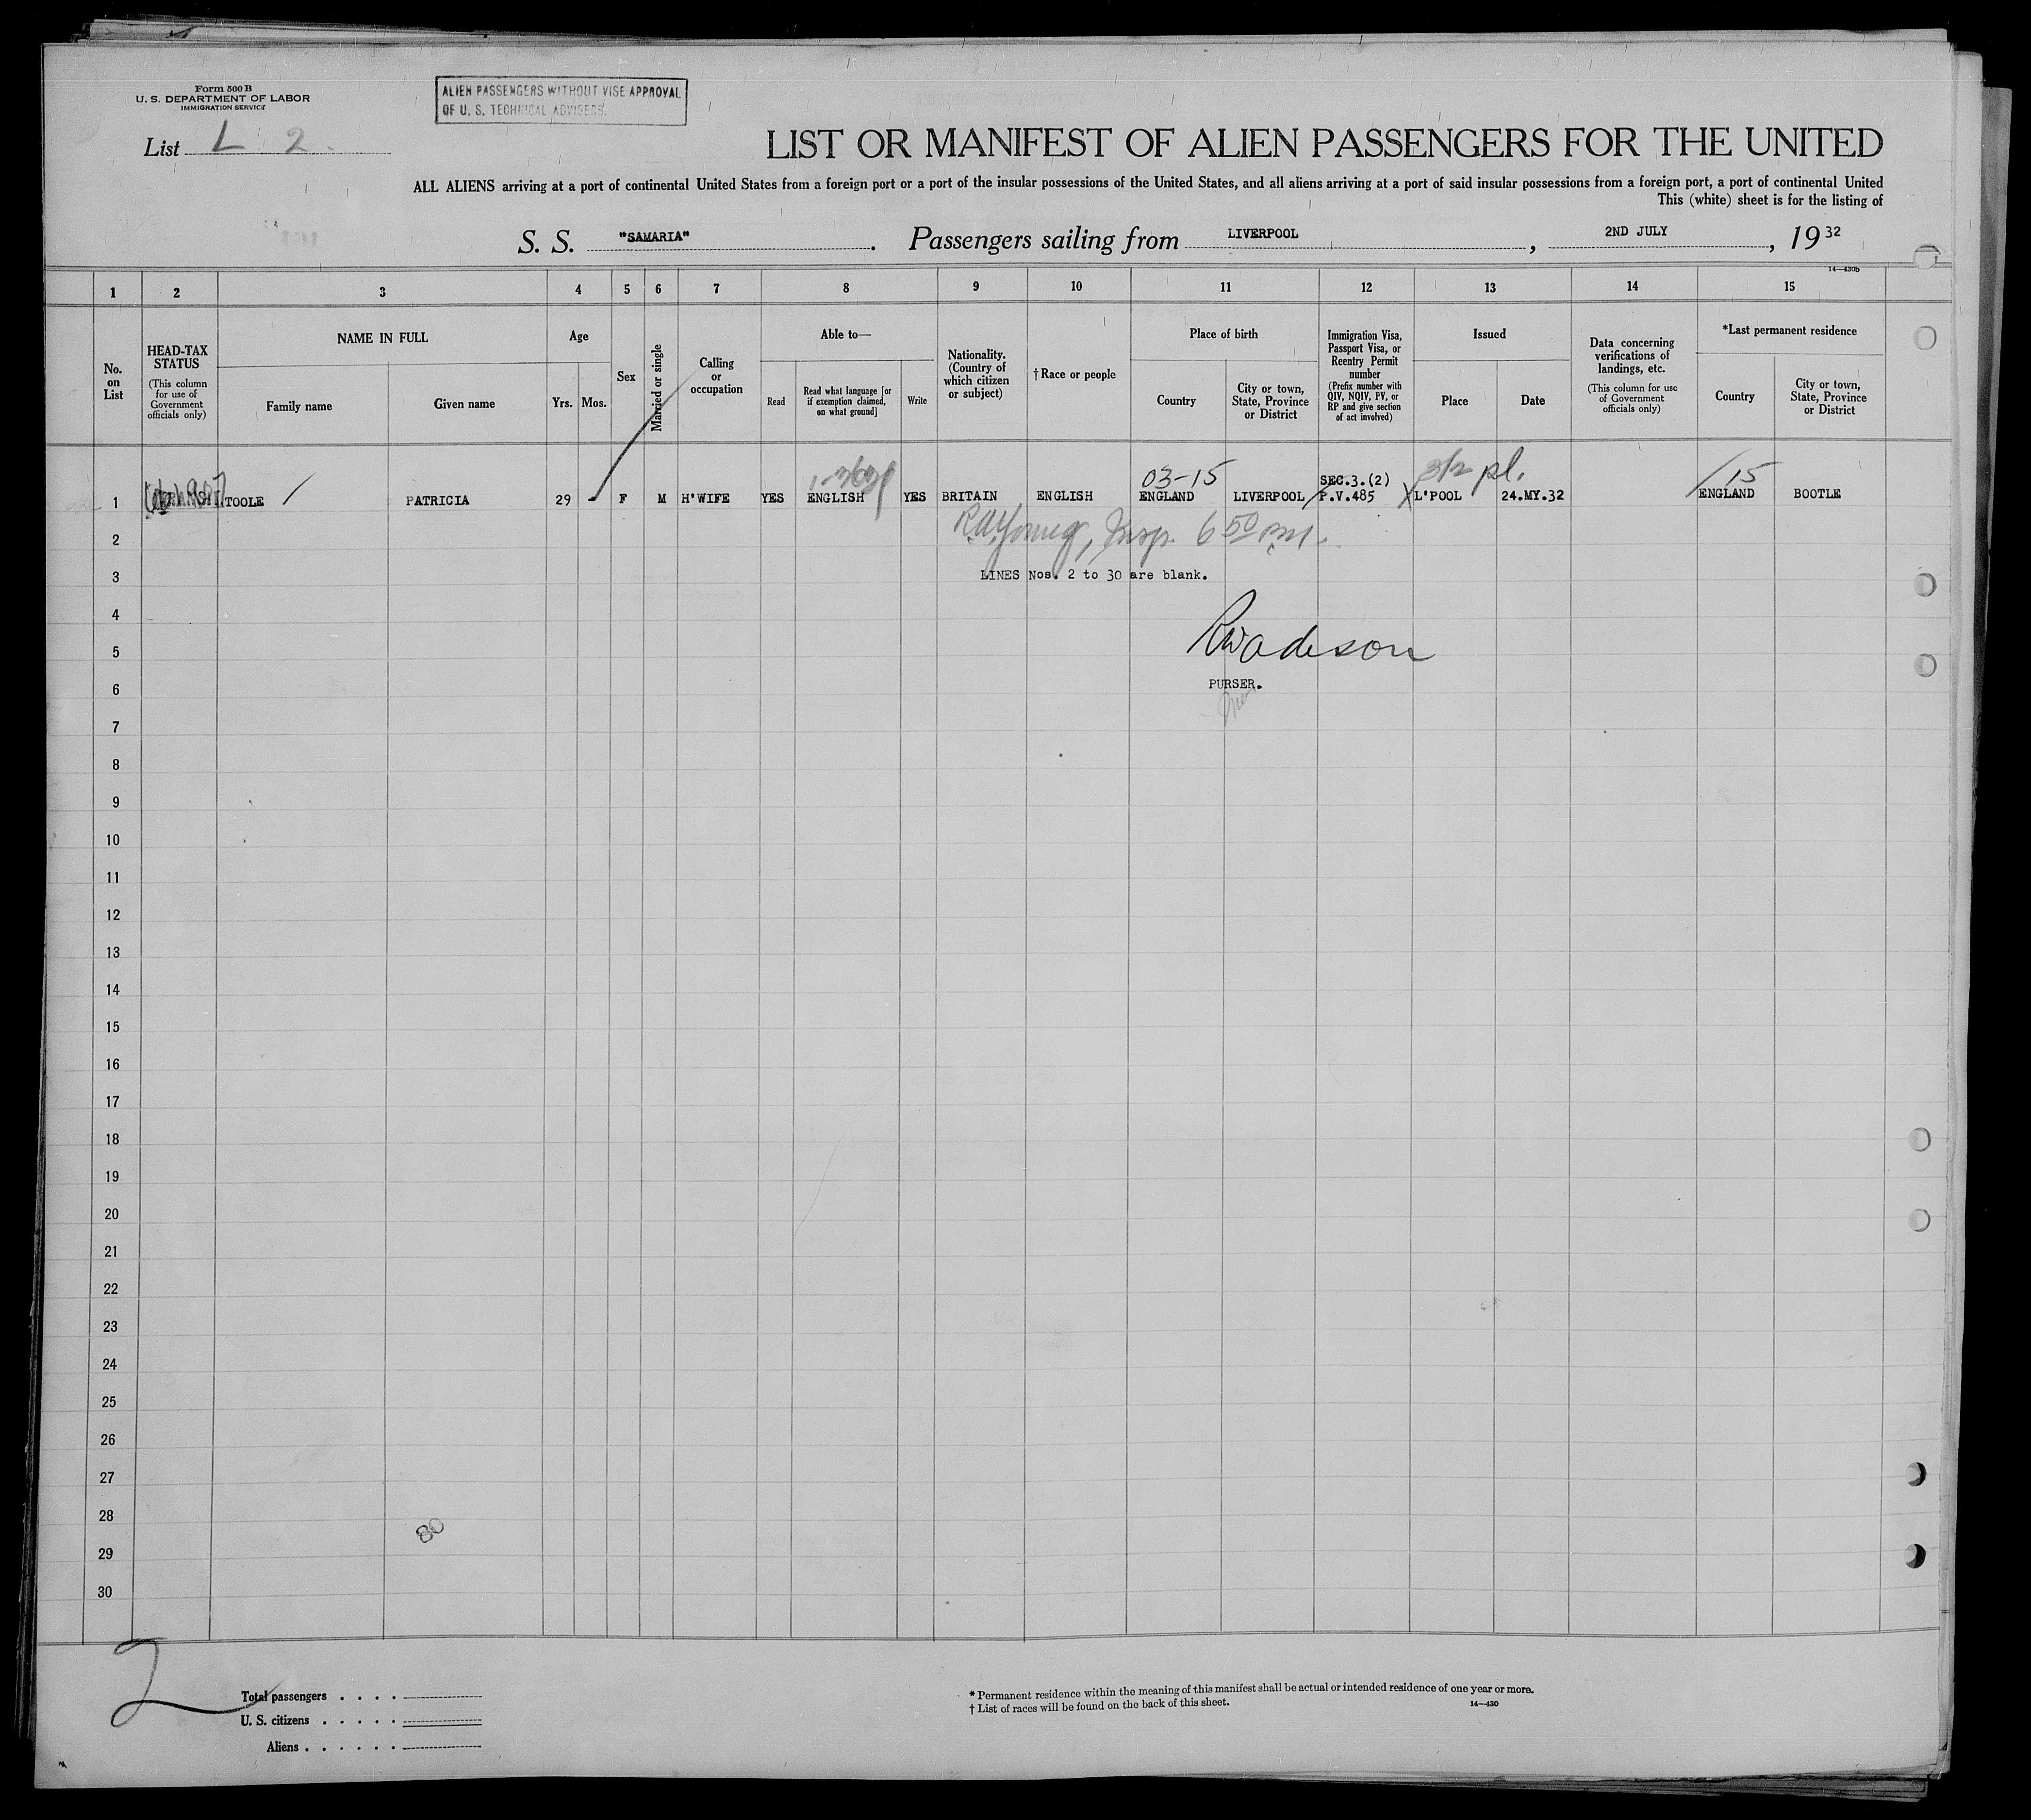 Form 500 B
U. S. DEPARTMENT OF LABOR
IMMIGRATION SERVICE
ALIEN PASSENGERS WITHOUT VISE APPROVAL
OF U. S. TECHNICAL ADVISERS.
List L 2
LIST OR MANIFEST OF ALIEN PASSENGERS FOR THE UNITED
ALL ALIENS arriving at a port of continental United States from a foreign port or a port of the insular possessions of the United States, and all aliens arriving at a port of said insular possessions from a foreign port, a port of continental United
This (white) sheet is for the listing of
S. S. "SAMARIA". Passengers sailing from LIVERPOOL, 2ND JULY, 1932
14—430b
1 2 3 4 5 6 7 8 9 10 11 12 13 14 15
No. on List
HEAD-TAX STATUS (This column for use of Government officials only)
NAME IN FULL
Family name
Given name
Age
Yrs.
Mos.
Sex
Married or single
Calling or occupation
Able to—
Read
Read what language [or if exemption claimed, on what ground]
Write
Nationality. (Country of which citizen or subject)
†Race or people
Place of birth
Country
City or town, State, Province or District
Immigration Visa, Passport Visa, or Reentry Permit number (Prefix number with QIV, NQIV, PV, or RP and give section of act involved)
Issued
Place
Date
Data concerning verifications of landings, etc. (This column for use of Government officials only)
*Last permanent residence
Country
City or town, State, Province or District
03-15 SEC.3.(2) pl. 15
1 TOOLE PATRICIA 29 - F M H'WIFE YES ENGLISH YES BRITAIN ENGLISH ENGLAND LIVERPOOL P.V.485 L'POOL 24.MY.32 ENGLAND BOOTLE
2 Young, Insp. 6 50 pm.
3 LINES Nos. 2 to 30 are blank.
4
5 Rwadeson
6 PURSER.
7
8
9
10
11
12
13
14
15
16
17
18
19
20
21
22
23
24
25
26
27
28 80
29
30
2
Total passengers . . . .
U. S. citizens . . . . .
Aliens . . . . . .
* Permanent residence within the meaning of this manifest shall be actual or intended residence of one year or more.
† List of races will be found on the back of this sheet.
14—430